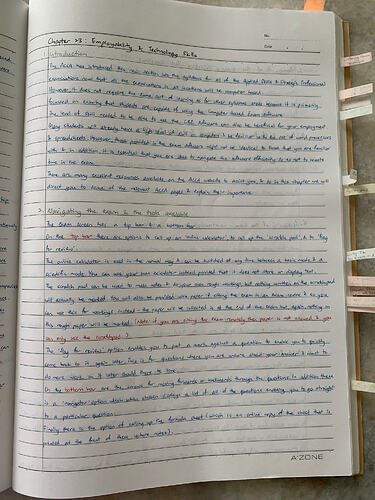 No.
Date
Chapter 23: Employability & Technology Skills
1. Introduction
The ACCA has introduced this new section into the syllabus for all of the Applied Skills & Strategic Professional
examinations now that all the examinations in all locations will be computer based.
However it does not require the same sort of learning as for other syllabus areas because it is primarily
focused on ensuring that students are capable of using the computer based exam software.
The level of skill needed to be able to use the CBE software can also be beneficial for your employment.
Many students will already have a high level of skill in computers & be familiar with the use of word processors
& spreadsheets. However, those provided in the exam software might not be identical to those that you are familiar
with & in addition it is essential that you are able to navigate the software efficiently so as not to waste
time in the exam.
There are many excellent resources available on the ACCA website to assist you, & so in this chapter we will
direct you to some of the relevant ACCA pages & explain their importance.
2. Navigating the exam & the tools available
The exam screen has a top bar & a bottom bar
On the 'top bar' there are options to call up an online calculator, to call up the 'scratch pad', & to 'flag
for review'.
The online calculator is used in the normal way & can be switched at any time between a basic mode & a
scientific mode. You can use your own calculator instead provided that it does not store or display text.
The scratch pad can be used to make notes & for your own rough workings, but nothing written on the scratchpad
will actually be marked. You will also be provided with paper if sitting the exam in an exam centre & so you
can use this for workings instead - the paper will be collected in at the end of the exam but again, nothing on
this rough paper will be marked. (Note: if you are sitting the exam remotely then paper is not allowed & you
can only use the scratchpad.)
The 'flag for review' option enables you to put a mark against a question to enable you to quickly
come back to it again later. This is for questions where you are unsure about your answer & want to
do more work on it later should there be time.
On the bottom bar are the arrows for moving forwards or backwards through the questions. In addition there
is a 'navigator' option which when clicked displays a list of all of the questions enabling you to go straight
to a particular question.
Finally there is the option of calling up the formula sheet (which is an entire copy of the sheet that is
printed at the front of these lecture notes).
A*ZONE